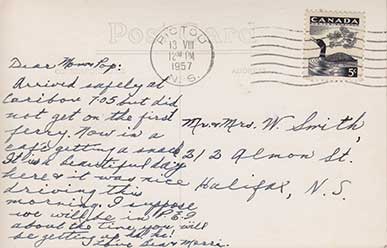 Post Card
PICTOU
13 VIII
12 PM
1957
N.S.
CANADA
5¢
Dear Mom & Pop:
Arrived safely at
Caribou 7:05 but did
not get on the first
ferry. Now in a
cafe getting a snack
It's a beautiful day
here & it was nice
driving this
morning. I suppose
we will be in P.E.I
about the time you will
be getting up
Love
Mr. & Mrs. W. Smith,
212 Almon St.
Halifax, N.S.